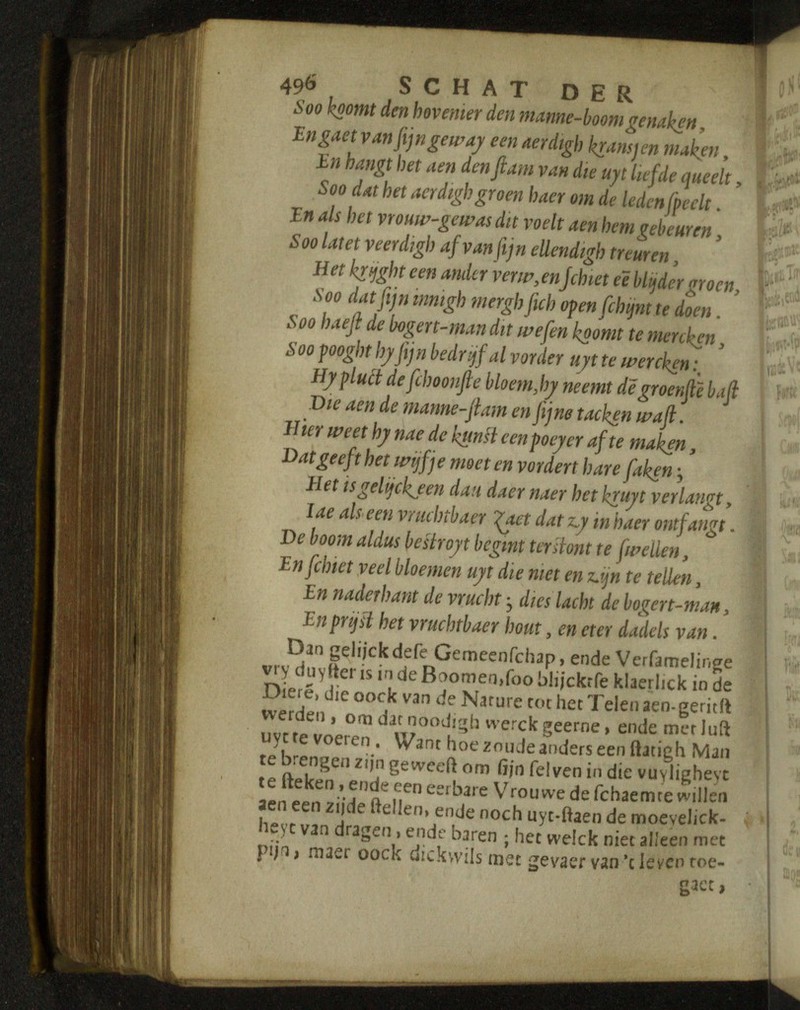 496 SCHAT DER
Soo koomt den hovenier den manne-boom genaken,
En gaet van ſijn geway een aerdigh kransjen maken,
En hangt het aen den ſtam van die uyt liefde queelt,
Soo dat het aerdigh groen haer om de leden ſpeelt.
En als het vrouw-gewas dit voelt aen hem gebeuren,
Soo latet veerdigh af van ſijn ellendigh treuren,
Het krijght een ander verw, en ſchiet eē blijder groen,
Soo dat ſijn innigh mergh ſich open ſchijnt te doen.
Soo haeſt de bogert-man dit weſen koomt te mercken,
Soo pooght hy ſijn bedrijf al vorder uyt te wercken:
Hy pluct de ſchoonſte bloem, hy neemt dē groenſtē baſt
Die aen de manne-ſtam en ſijne tacken waſt.
Hier weet hy nae de kunſt een poeyer af te maken,
Dat geeft het wijfje moet en vordert hare ſaken;
Het is gelijck een dau daer naer het kruyt verlangt,
Iae als een vruchtbaer Zaet dat zy in haer ontfangt.
De boom aldus beſtroyt begint terſtont te ſwellen,
En ſchiet veel bloemen uyt die niet en zijn te tellen,
En naderhant de vrucht; dies lacht de bogert-man,
En prijſt het vruchtbaer hout, en eter dadels van.
Dan gelijck deſe Gemeenſchap, ende Verſamelinge
vry duyſter is in de Boomen, ſoo blijcktſe klaerlick in de
Diere, die oock van de Nature tot het Telen aen-geritſt
werden, om dat noodigh werck geerne, ende met luſt
uyt te voeren. Want hoe zoude anders een ſtatigh Man
te brengen zijn geweeſt om ſijn ſelven in die vuyligheyt
te ſteken, ende een eerbare Vrouwe de ſchaemte willen
aen een zijde ſtellen, ende noch uyt-ſtaen de moeyelick-
heyt van dragen, ende baren; het welck niet alleen met
pijn, maer oock dickwils met gevaer van 't leven toe-
gaet,